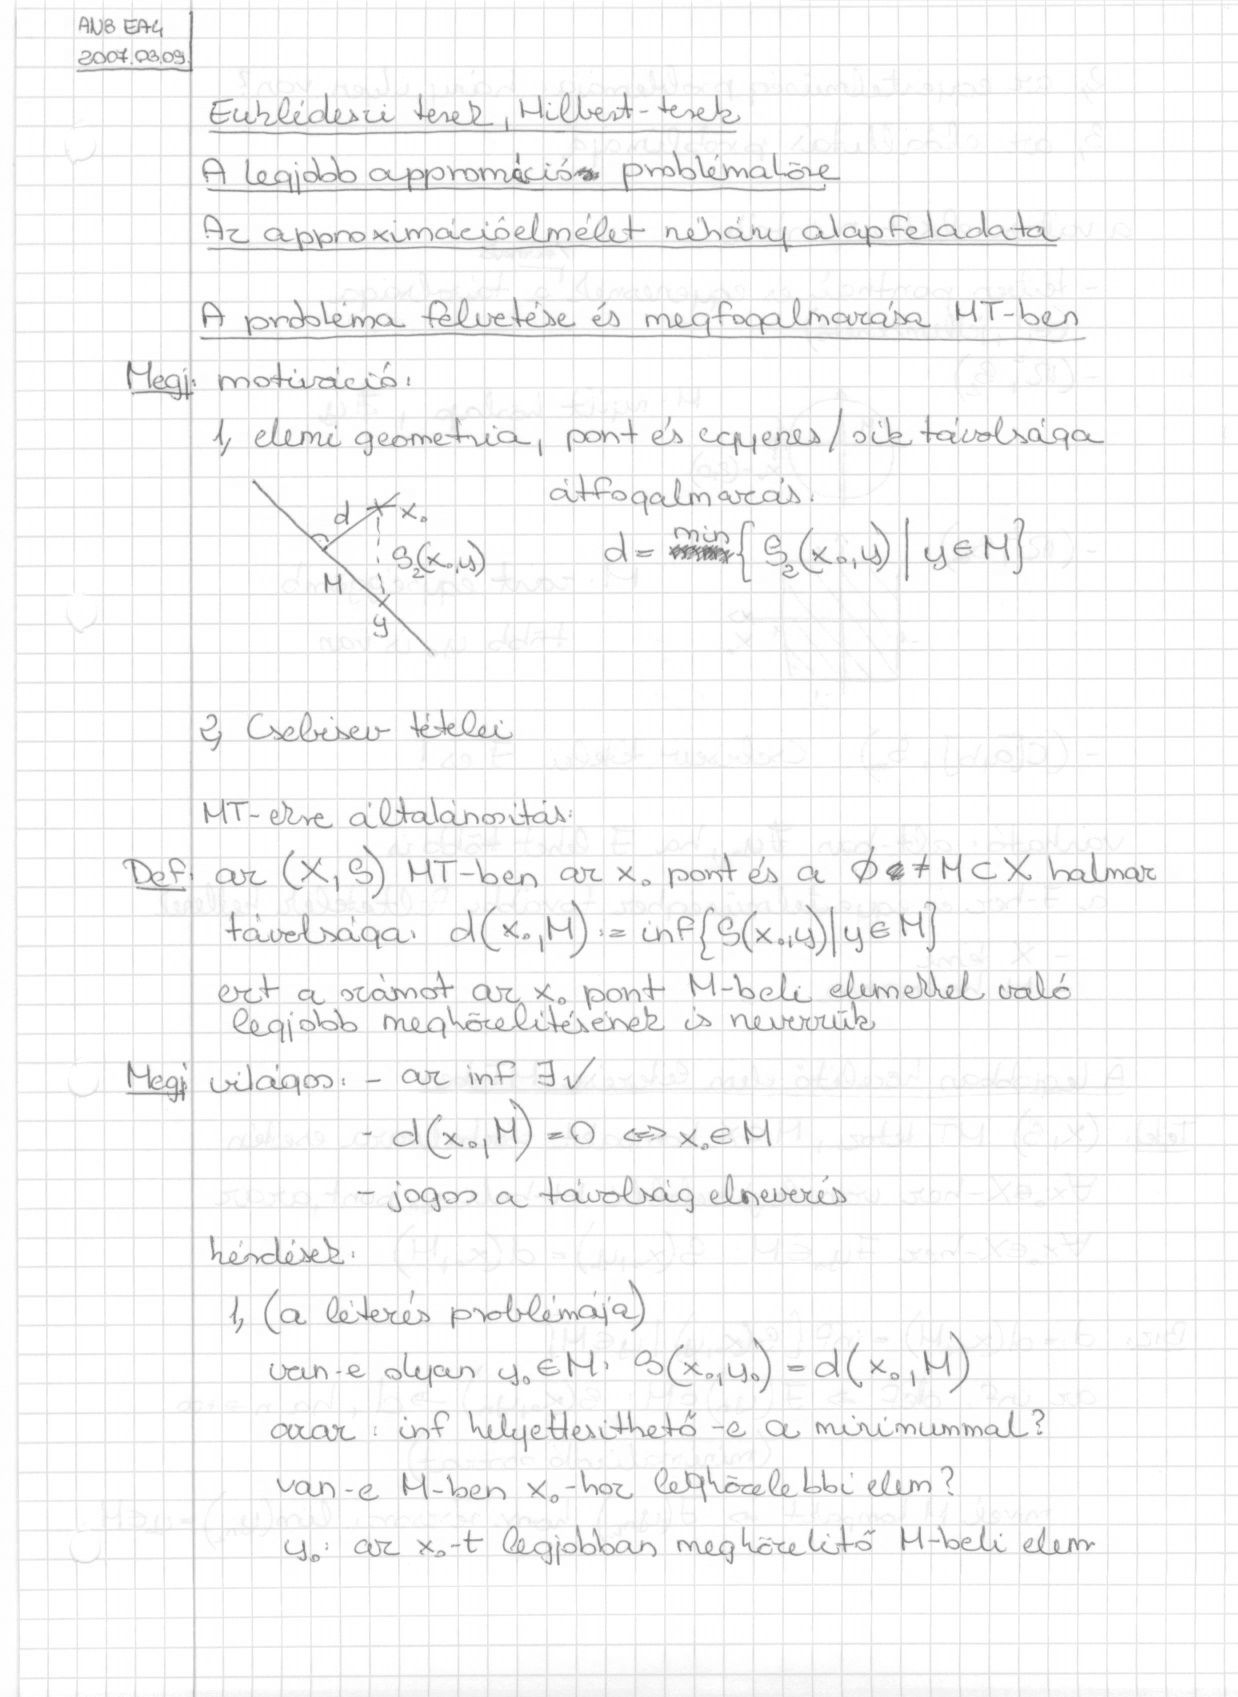 AN8 EA4
2007.03.09.
Euklideszi terek, Hilbert-terek
A legjobb appromáció problémaköre
Az approximációelmélet néhány alapfeladata
A probléma felvetése és megfogalmazása MT-ben
Megj: motiváció:
1, elemi geometria, pont és egyenes/sík távolsága
átfogalmazás:
d x₀
d = min{ρ₂(x₀,y) | y∈M}
ρ₂(x₀,y)
M
y
2, Csebisev tételei
MT-ekre általánosítás:
Def: az (X,ρ) MT-ben az x₀ pont és a ∅ ≠ M⊂X halmaz
távolsága: d(x₀,M) := inf{ρ(x₀,y)|y∈M}
ezt a számot az x₀ pont M-beli elemekkel való
legjobb megközelítésének is nevezzük
Megj világos: - az inf ∃ ✓
- d(x₀,M)=0 ⇔ x₀∈M
- jogos a távolság elnevezés
kérdések:
1, (a létezés problémája)
van-e olyan y₀∈M: ρ(x₀,y₀) = d(x₀,M)
azaz: inf helyettesíthető-e a minimummal?
van-e M-ben x₀-hoz legközelebbi elem?
y₀: az x₀-t legjobban megközelítő M-beli elem